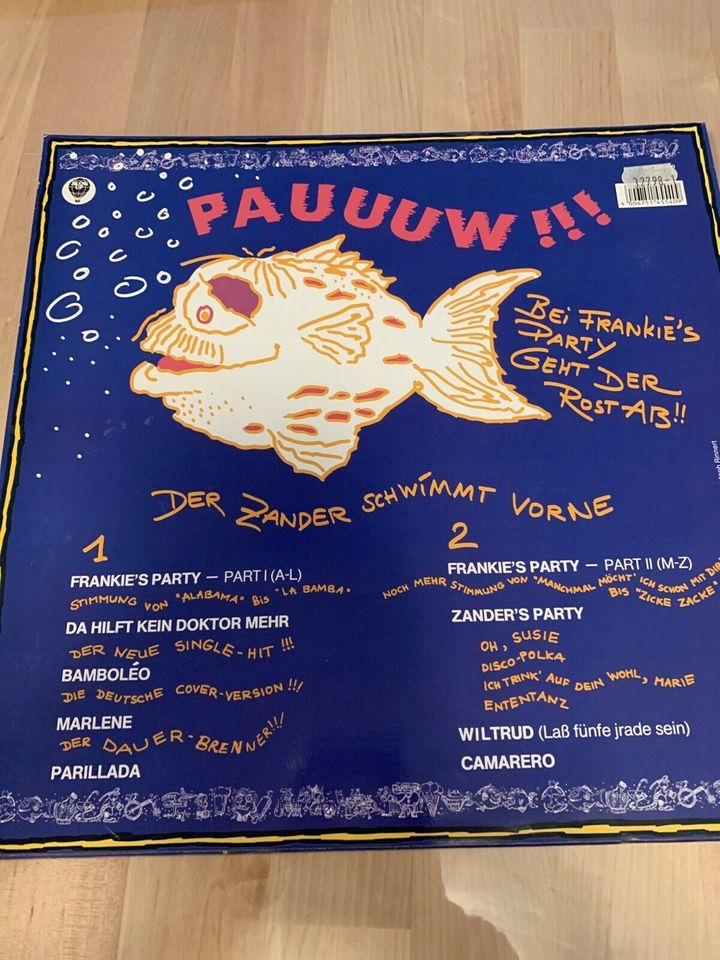 PAUUUW !!!
32798-1
4 006751 455409
BEI FRANKIE'S
PARTY
GEHT DER
ROST AB!!
DER ZANDER SCHWIMMT VORNE
1
FRANKIE'S PARTY — PART I (A-L)
STIMMUNG VON "ALABAMA" BIS "LA BAMBA"
DA HILFT KEIN DOKTOR MEHR
DER NEUE SINGLE-HIT !!!
BAMBOLÉO
DIE DEUTSCHE COVER-VERSION!!!
MARLENE
DER DAUER-BRENNER!!!
PARILLADA
2
FRANKIE'S PARTY — PART II (M-Z)
NOCH MEHR STIMMUNG VON "MANCHMAL MÖCHT' ICH SCHON MIT DIR"
BIS "ZICKE ZACKE"
ZANDER'S PARTY
OH, SUSIE
DISCO-POLKA
ICH TRINK' AUF DEIN WOHL, MARIE
ENTENTANZ
WILTRUD (Laß fünfe jrade sein)
CAMARERO